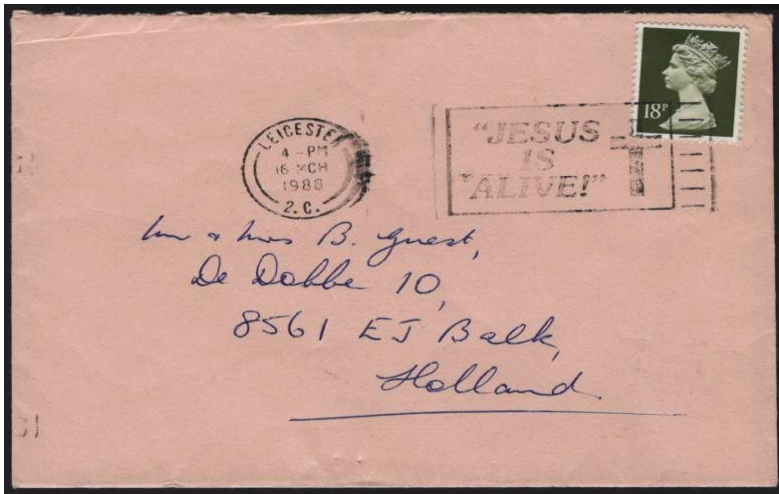 18P
LEICESTER
4 - PM
16 MCH
1988
Z.C.
"JESUS
IS
ALIVE!"
Mr & Mrs B. Guest,
De Dobbe 10,
8561 EJ Balk,
Holland